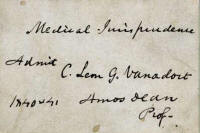 Medical Jurisprudence
Admit
C. Leon G. Vanadort
1840 & 41 Amos Dean
Prof-